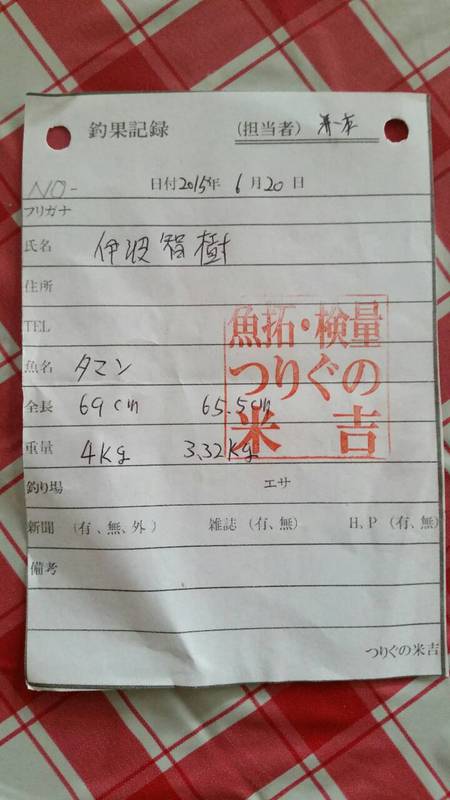 釣果記録 (担当者)
NO-
日付2015年 6月20日
フリガナ
氏名 伊波智樹
住所
TEL
魚名 タマン
全長 69cm 65.5cm
重量 4kg 3.32kg
釣り場 エサ
新聞 (有、無、外) 雑誌 (有、無) H,P (有、無)
備考
魚拓・検量
つりぐの
米吉
つりぐの米吉